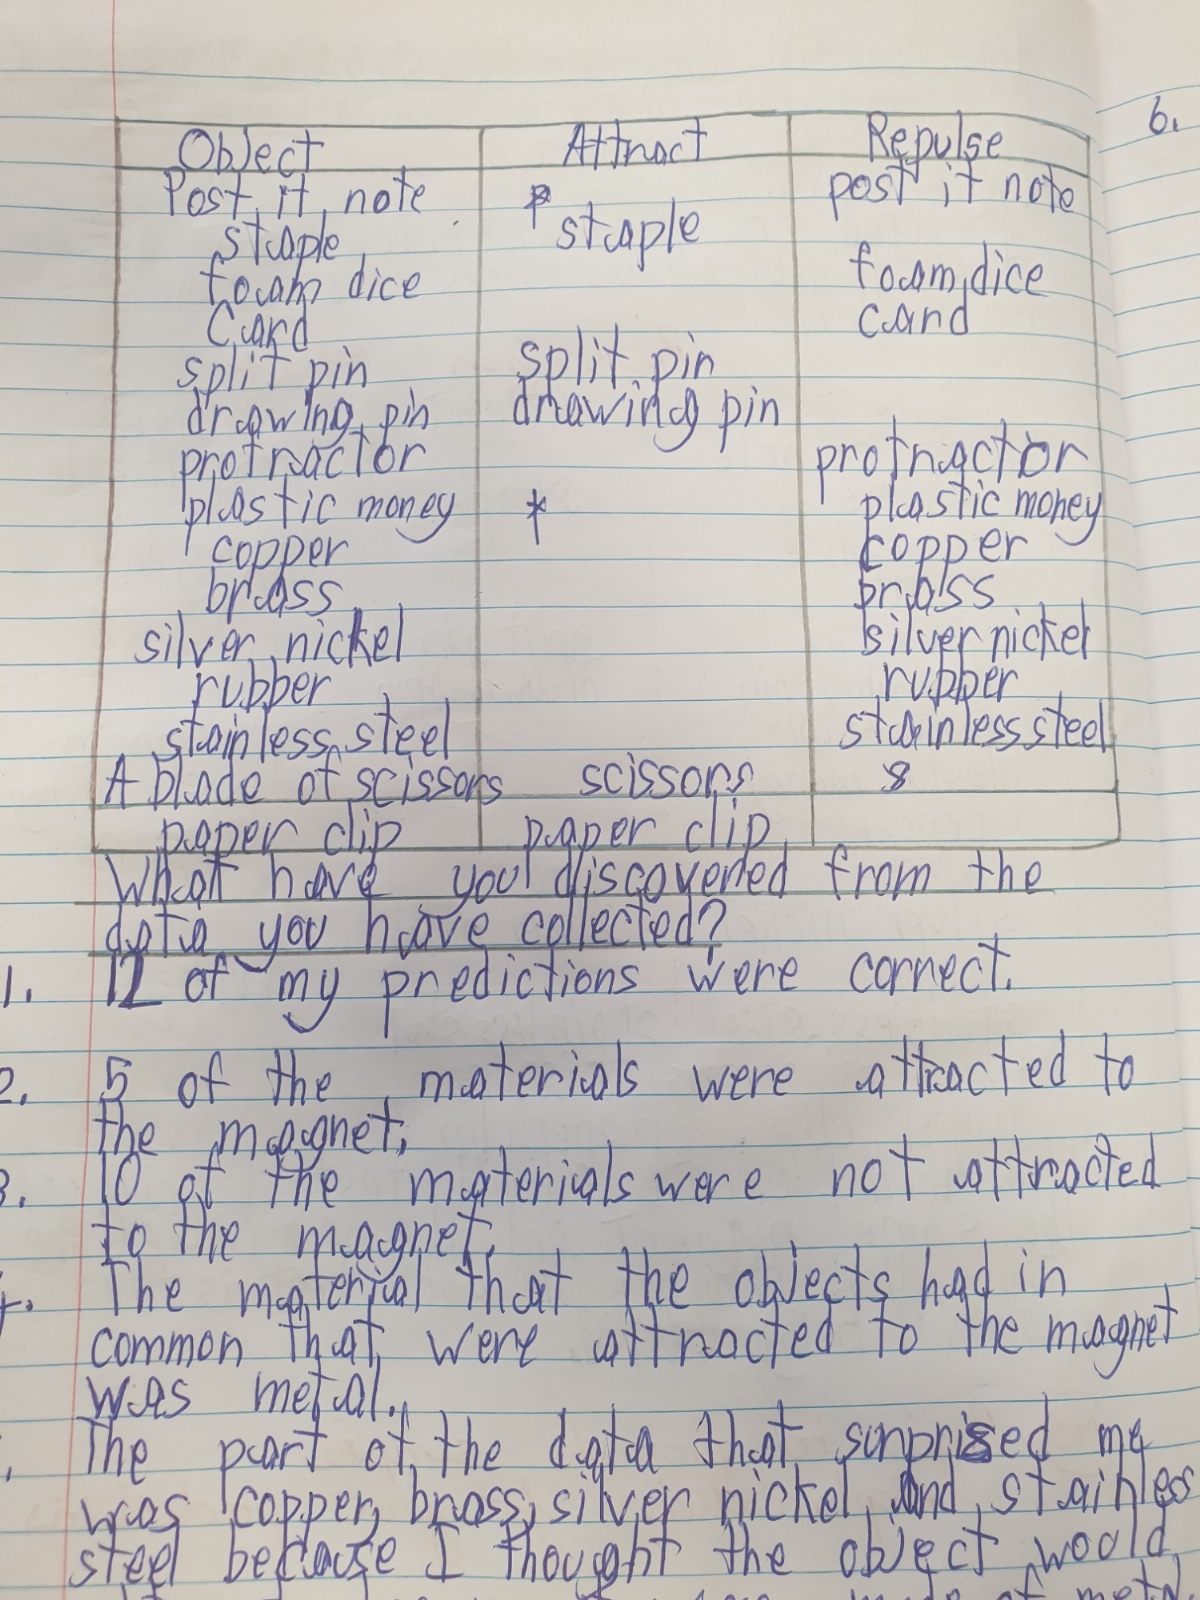 6.
Object Attract Repulse
Post it note * post it note
staple staple
foam dice foam dice
Card card
split pin split pin
drawing pin drawing pin
protractor protractor
plastic money * plastic money
copper copper
brass brass
silver nickel silver nickel
rubber rubber
stainless steel stainless steel
A blade of scissors scissors 8
paper clip paper clip
What have you discovered from the
data you have collected?
1. 12 of my predictions were correct.
2. 5 of the materials were attracted to
the magnet.
3. 10 of the materials were not attracted
to the magnet.
4. The material that the objects had in
common that were attracted to the magnet
was metal.
The part of the data that surprised me
was copper, brass, silver nickel, and stainless
steel because I thought the object would
made of metal